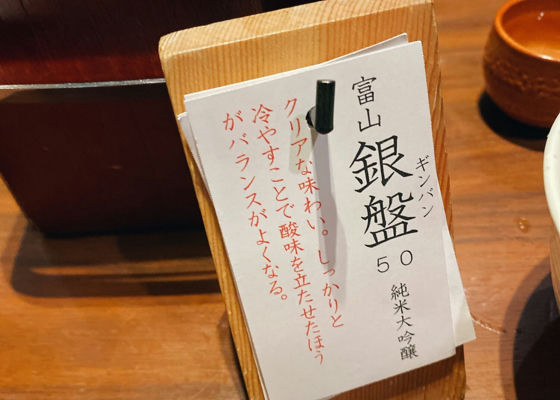 富山
銀盤
ギンバン
50
純米大吟醸
クリアな味わい。しっかりと
冷やすことで酸味を立たせたほう
がバランスがよくなる。